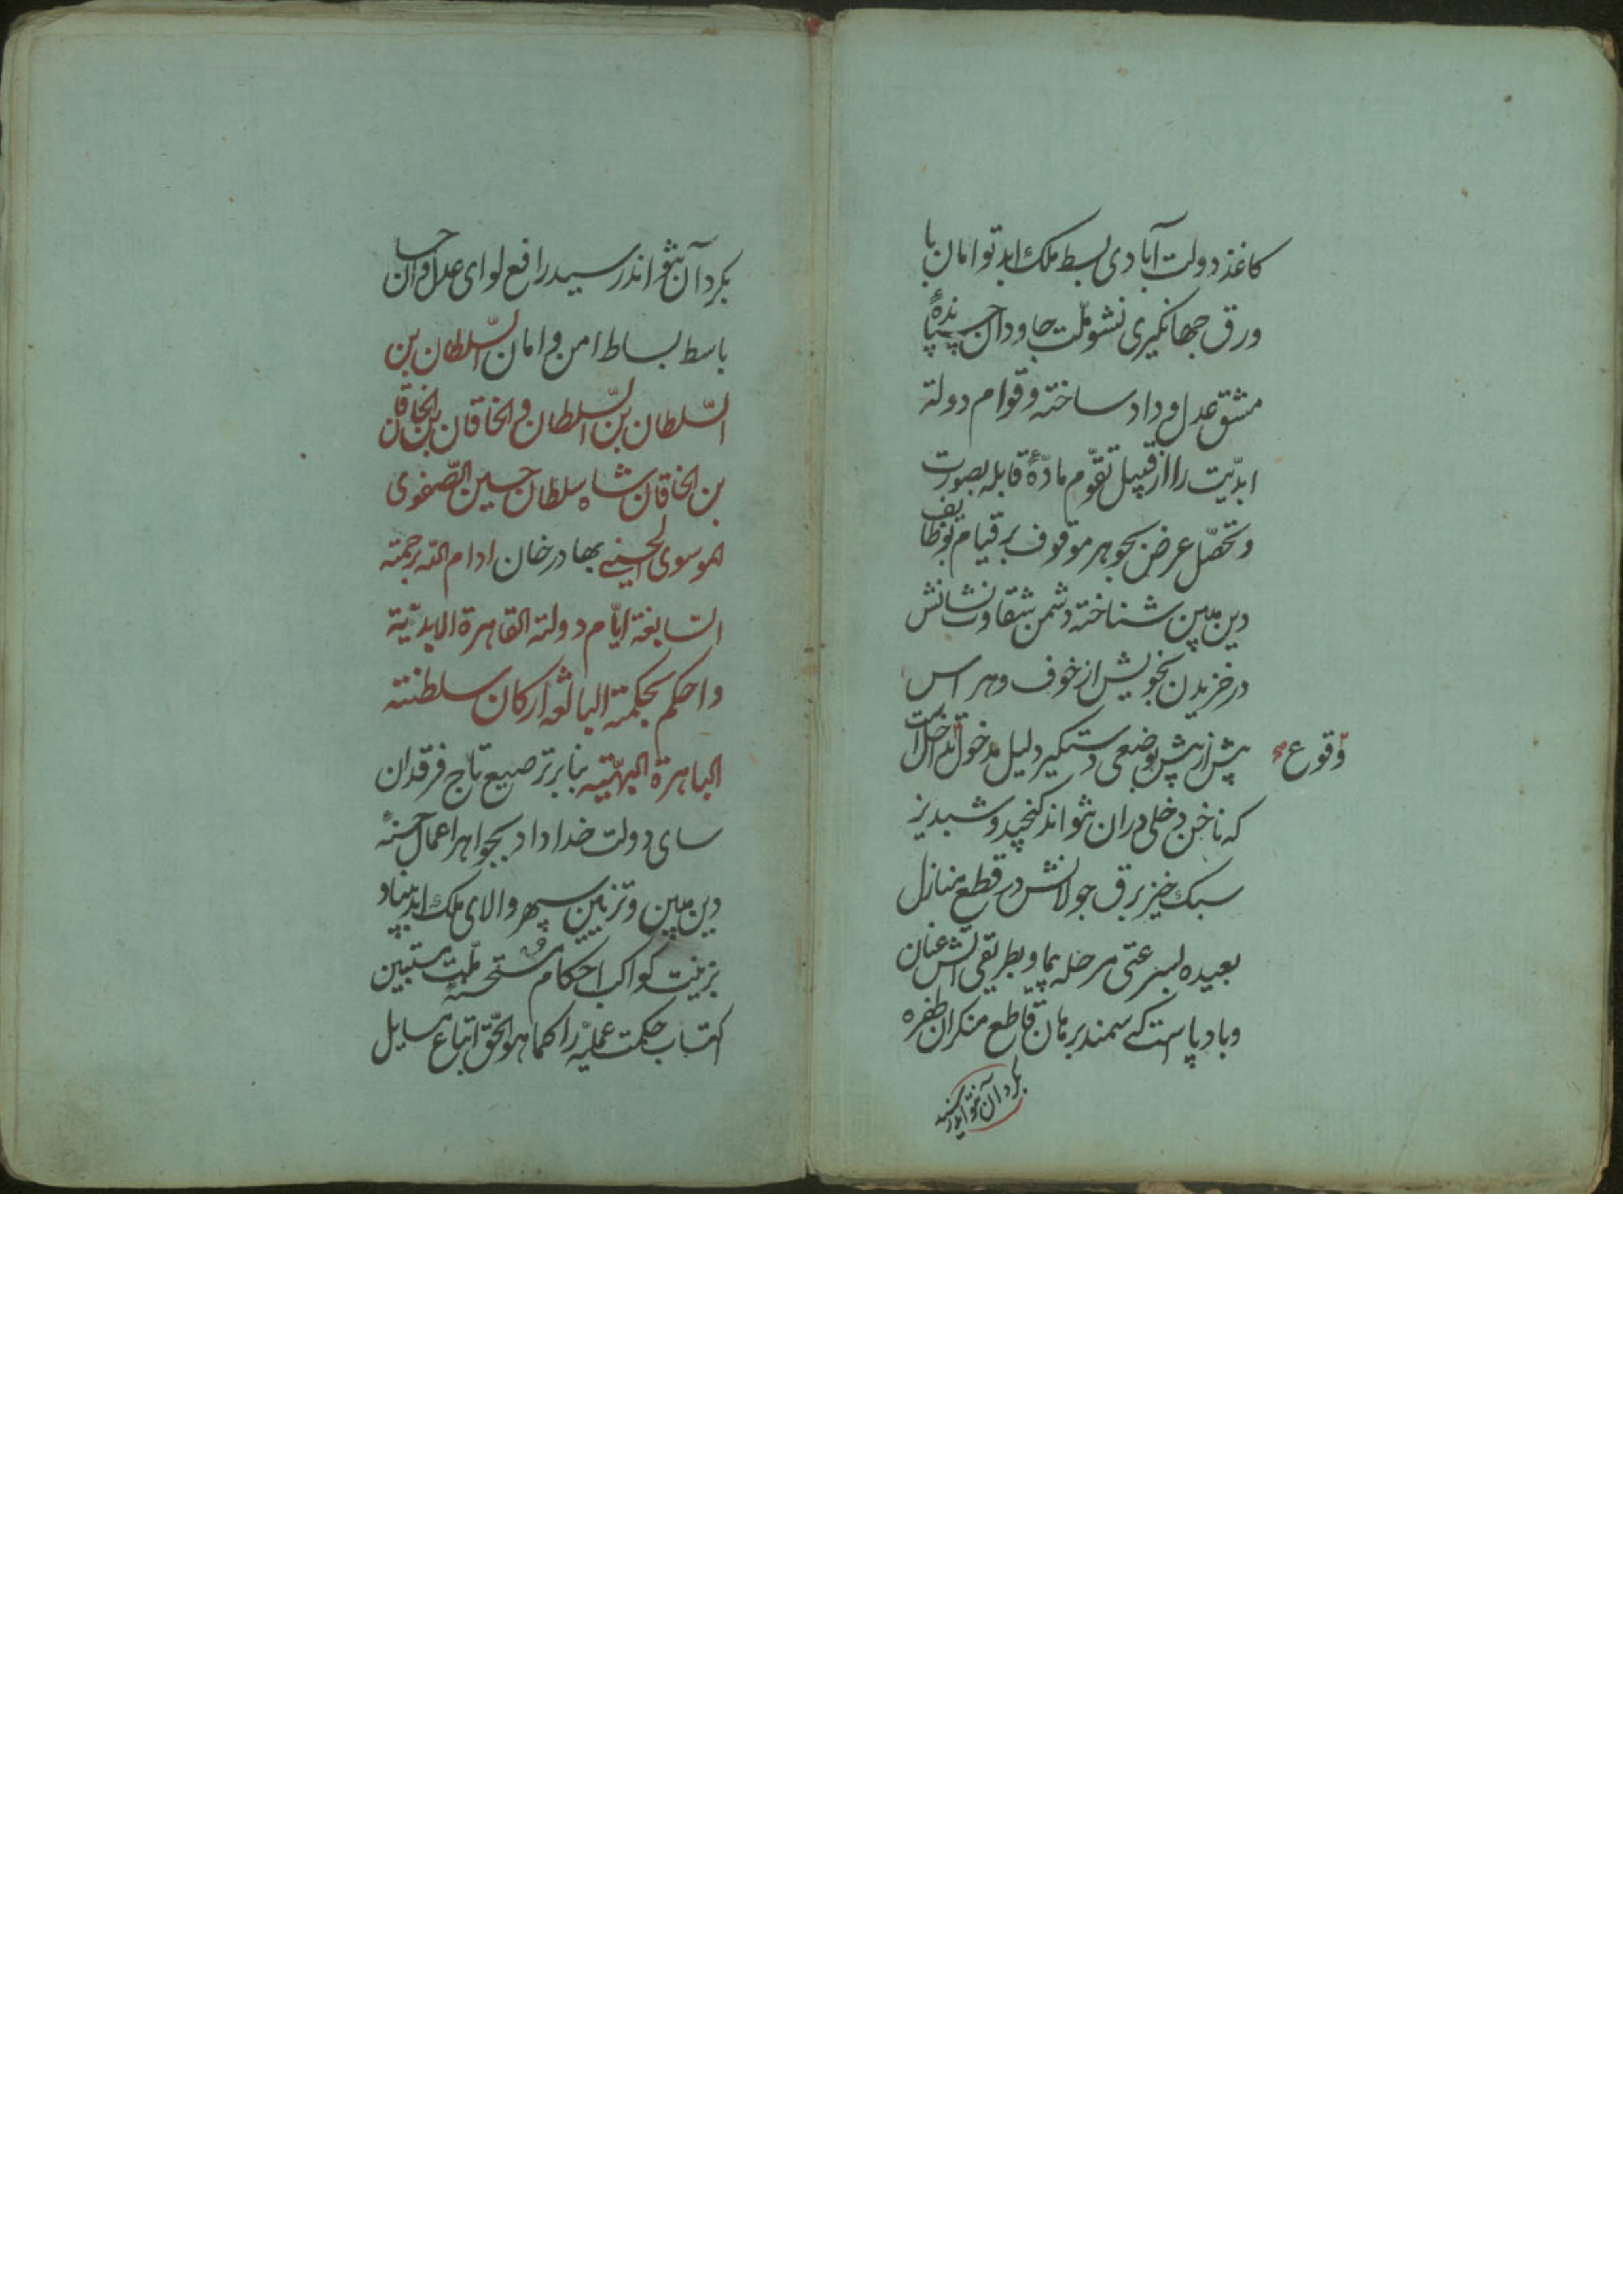 کاغذ دولت آبادی بسط ملک ابد توامان با
ورق جهانکیری نشو ملّت جاودان چسپانیدهٔ
مشق عدل و داد ساخته و قوام دولة
ابدیّت را از قبیل تقوّم مادّهٔ قابله بصورت
و تحصّل عرض بجوهر موقوف بر قیام بوظایف
دین مبین شناخته دشمن شقاوت نشانش
در خزیدن بخویش از خوف و هراس
پیش از پیش بوضعی دستکیر دلیل مدخول است
وقوع
که ناخن دخلی دران نتواند کنجید و شبدیز
سبک خیز برق جولانش در قطع منازل
بعیده بسرعتی مرحله پیما و بطریقی آتش عنان
و باد پاست که سمند برهان قاطع منکران طفره
بکرد آن نتواند رسید
بکرد آن نتواند رسید رافع لوای عدل و احسان
باسط بساط امن و امان السّلطان بن
السّلطان بن السّلطان و الخاقان بن الخاقان
بن الخاقان شاه سلطان حسین الصّفوی
الموسوی الحسینی بهادر خان ادام الله برحمته
السّابغة ایّام دولته القاهرة الابدیّة
و احکم بحکمته البالغه ارکان سلطنته
الباهرة البهیّته بنا بر ترصیع تاج فرقدان
سای دولت خداداد بجواهر اعمال حسنهٔ
دین مبین و تزیین سپهر والای ملک ابد بنیاد
بزینت کواکب احکام مستحسنهٔ ملّت مستبین
اکتساب حکمت عملیّه را کما هو الحقّ اتباع مسایل